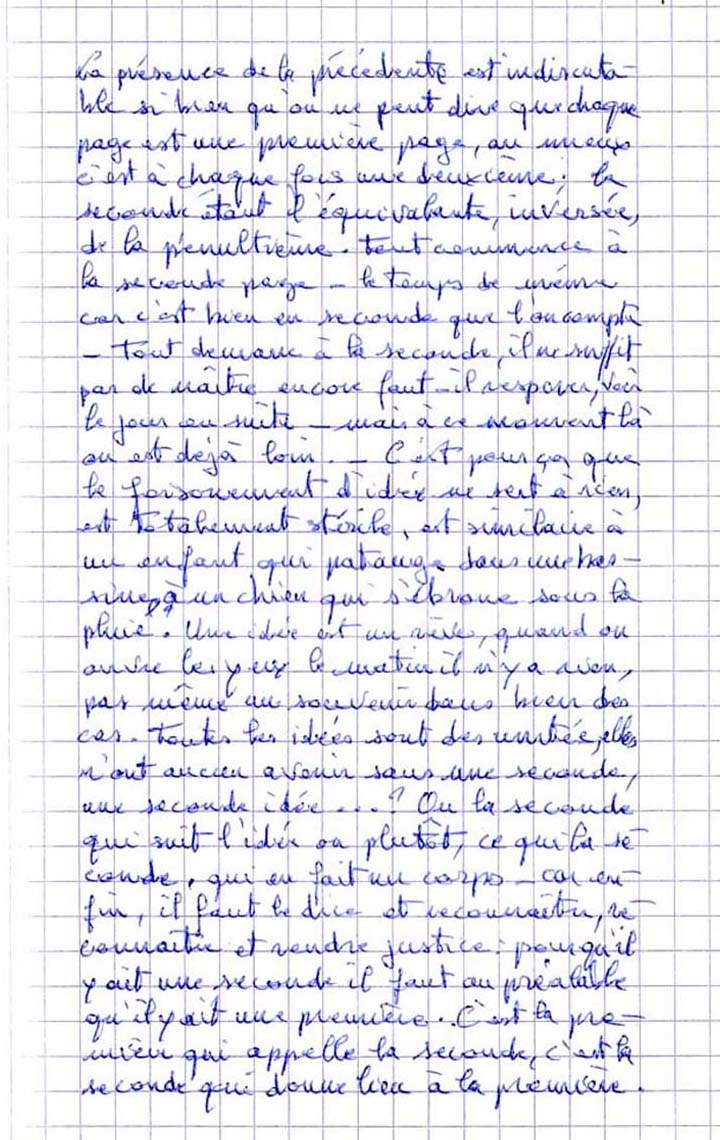 La présence de la précédente est indiscuta-
ble si bien qu'on ne peut dire que chaque
page est une première page, au mieux
c'est à chaque fois une deuxième ; la
seconde étant l'équivalente, inversée,
de la pénultième. Tout commence à
la seconde page – le temps de même
car c'est bien en seconde que l'on compte
– Tout demeure à la seconde, il ne suffit
pas de naître encore faut-il respirer, voir
le jour ensuite – mais à ce moment là
on est déjà loin. – C'est pour ça que
le foisonnement d'idée ne sert à rien,
est totalement stérile, est similaire à
un enfant qui patauge dans une bas-
sine, à un chien qui s'ébroue sous la
pluie. Une idée est un rêve, quand on
ouvre les yeux le matin il n'y a rien,
pas même un souvenir dans bien des
cas. Toutes les idées sont des unités, elles
n'ont aucun avenir sans une seconde,
une seconde idée ...? Ou la seconde
qui suit l'idée ou plutôt, ce qui la se-
conde, qui en fait un corps – car en-
fin, il faut le dire et reconnaître, re-
connaître et rendre justice : pour qu'il
y ait une seconde il faut au préalable
qu'il y ait une première. C'est la pre-
mière qui appelle la seconde, c'est la
seconde qui donne lieu à la première.